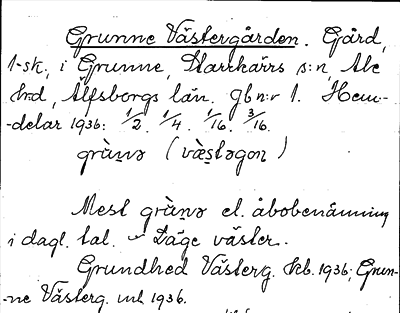 Grunne Västergården. Gård,
1-sk, i Grunne, Starrkärrs s:n, Ale
hrd, Älfsborgs län. Gbn:r 1. Hem-
-delar 1936: 1/2. 1/4. 1/16. 3/16.
grùn̲ə (vès̲təgoṇ)
Mest grùn̲ə el. åbobenämning
i dagl. tal. Läge väster.
Grundhed Västerg. kb. 1936; Grun-
-ne Västerg. ml 1936.